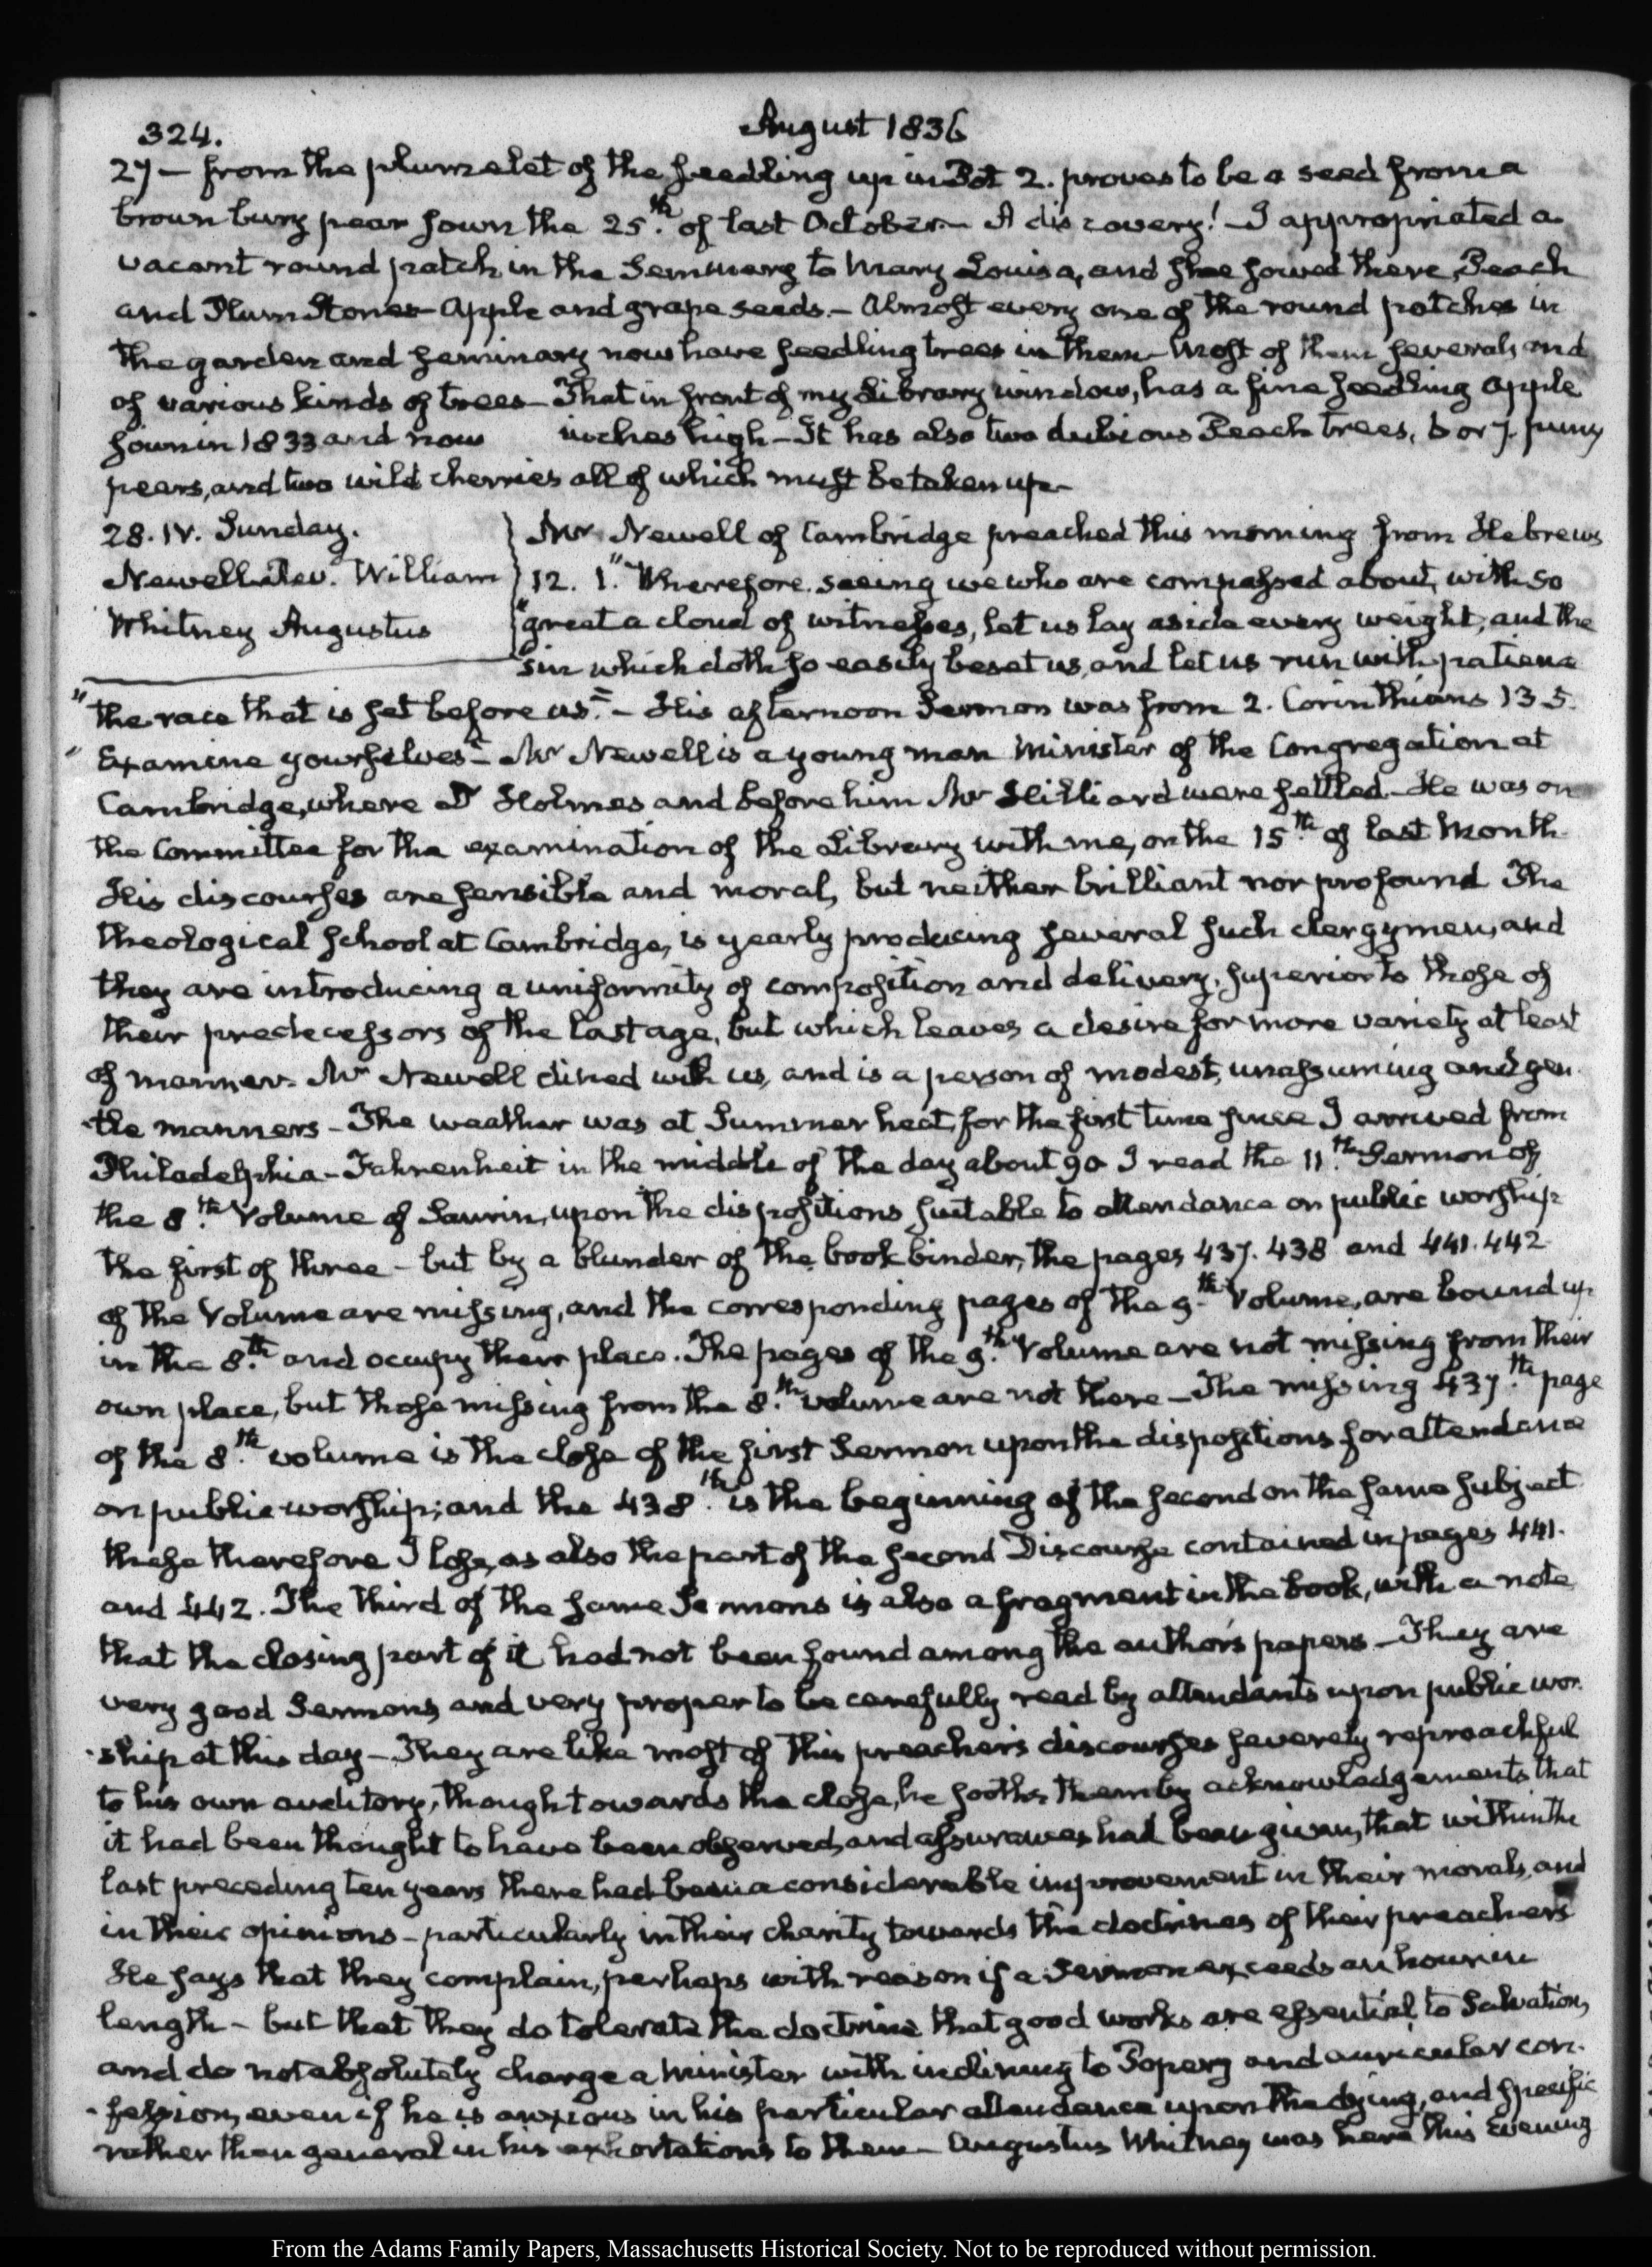 324.
August 1836
27 — from the plumelet of the seedling up in Pot 2. proves to be a seed from a
brown bury pear sown the 25.th of last October — A discovery! — I appropriated a
vacant round patch in the Seminary to Mary Louisa, and she sowed there, Peach
and Plum Stones — Apple and grape seeds. — Almost every one of the round patches in
the garden and seminary now have seedling trees in them — Most of them several, and
of various kinds of trees — That in front of my Library window, has a fine seedling Apple
sown in 1833 and now inches high — It has also two dubious Peach trees, 6 or 7 puny
pears, and two wild cherries all of which must be taken up —
28. IV. Sunday.
Newell Rev.d William
Whitney Augustus
Mr Newell of Cambridge preached this morning from Hebrews
12. 1. "Wherefore, seeing we who are compassed about, with so
"great a cloud of witnesses, let us lay aside every weight, and the
"sin which doth so easily beset us, and let us run with patience
"the race that is set before us." — His afternoon Sermon was from 2. Corinthians 13 5.
"Examine yourselves" — Mr Newell is a young man Minister of the Congregation at
Cambridge, where Dr Holmes and before him Mr Hilliard were settled — He was on
the Committee for the examination of the Library with me, on the 15th of last Month
His discourses are sensible and moral, but neither brilliant nor profound The
theological school at Cambridge, is yearly producing several such clergymen, and
they are introducing a uniformity of composition and delivery, superior to those of
their predecessors of the last age, but which leaves a desire for more variety at least
of manner. Mr Newell dined with us, and is a person of modest, unassuming and gen-
-tle manners — The weather was at Summer heat, for the first time since I arrived from
Philadelphia — Fahrenheit in the middle of the day about 90 I read the 11.th Sermon of
the 8.th Volume of Saurin, upon the dispositions suitable to attendance on public worship
the first of three — but by a blunder of the book binder, the pages 437. 438 and 441. 442
of the Volume are missing, and the corresponding pages of the 9.th Volume, are bound up
in the 8.th and occupy their place. The pages of the 9.th Volume are not missing from their
own place, but those missing from the 8.th volume are not there — The missing 437.th page
of the 8.th volume is the close of the first Sermon upon the dispositions for attendance
on public worship; and the 438.th is the beginning of the second on the same subject
these therefore I lose, as also the part of the second Discourse contained in pages 441.
and 442. The third of the same Sermons is also a fragment in the book, with a note
that the closing part of it had not been found among the author's papers — They are
very good Sermons and very proper to be carefully read by attendants upon public wor-
-ship at this day — They are like most of this preacher's discourses severely reproachful
to his own auditory, though towards the close, he soothes them by acknowledgements that
it had been thought to have been observed, and assurances had been given, that within the
last preceding ten years there had been a considerable improvement in their morals, and
in their opinions — particularly in their charity towards the doctrines of their preachers
He says that they complain, perhaps with reason if a Sermon exceeds an hour in
length — but that they do tolerate the doctrine that good works are essential to Salvation,
and do not absolutely charge a Minister with inclining to Popery and auricular con-
-fession, even if he is anxious in his particular attendance upon the dying, and specific
rather than general in his exhortations to them — Augustus Whitney was here this Evening
From the Adams Family Papers, Massachusetts Historical Society. Not to be reproduced without permission.